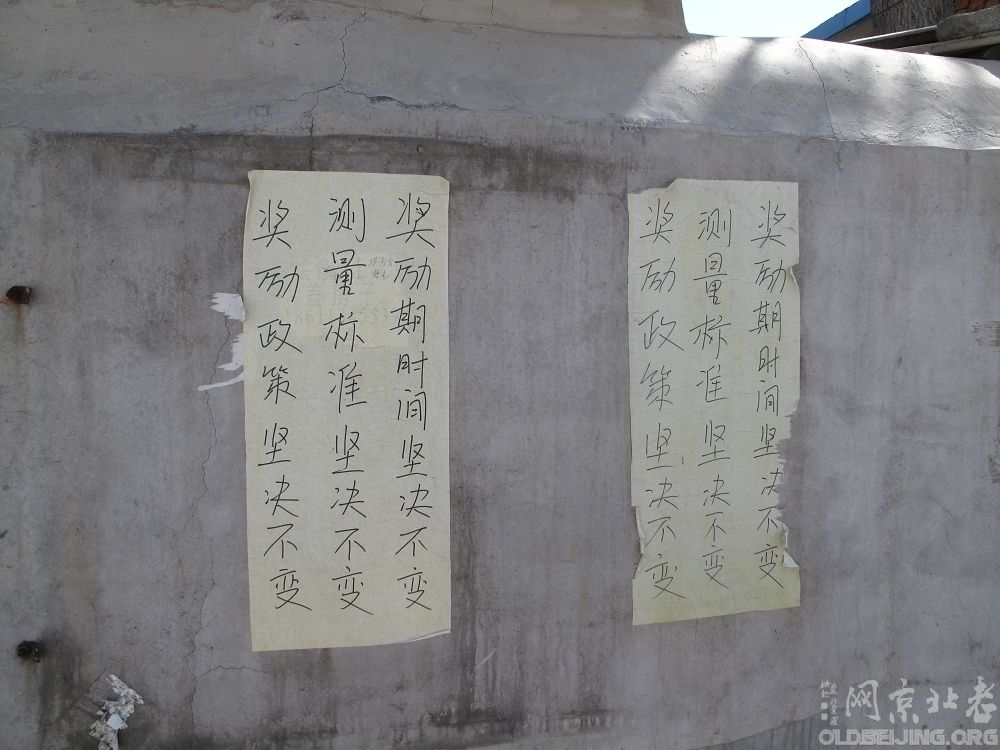 奖励期时间坚决不变
测量标准坚决不变
奖励政策坚决不变
奖励期时间坚决不变
测量标准坚决不变
奖励政策坚决不变
老北京网
OLDBEIJING.ORG